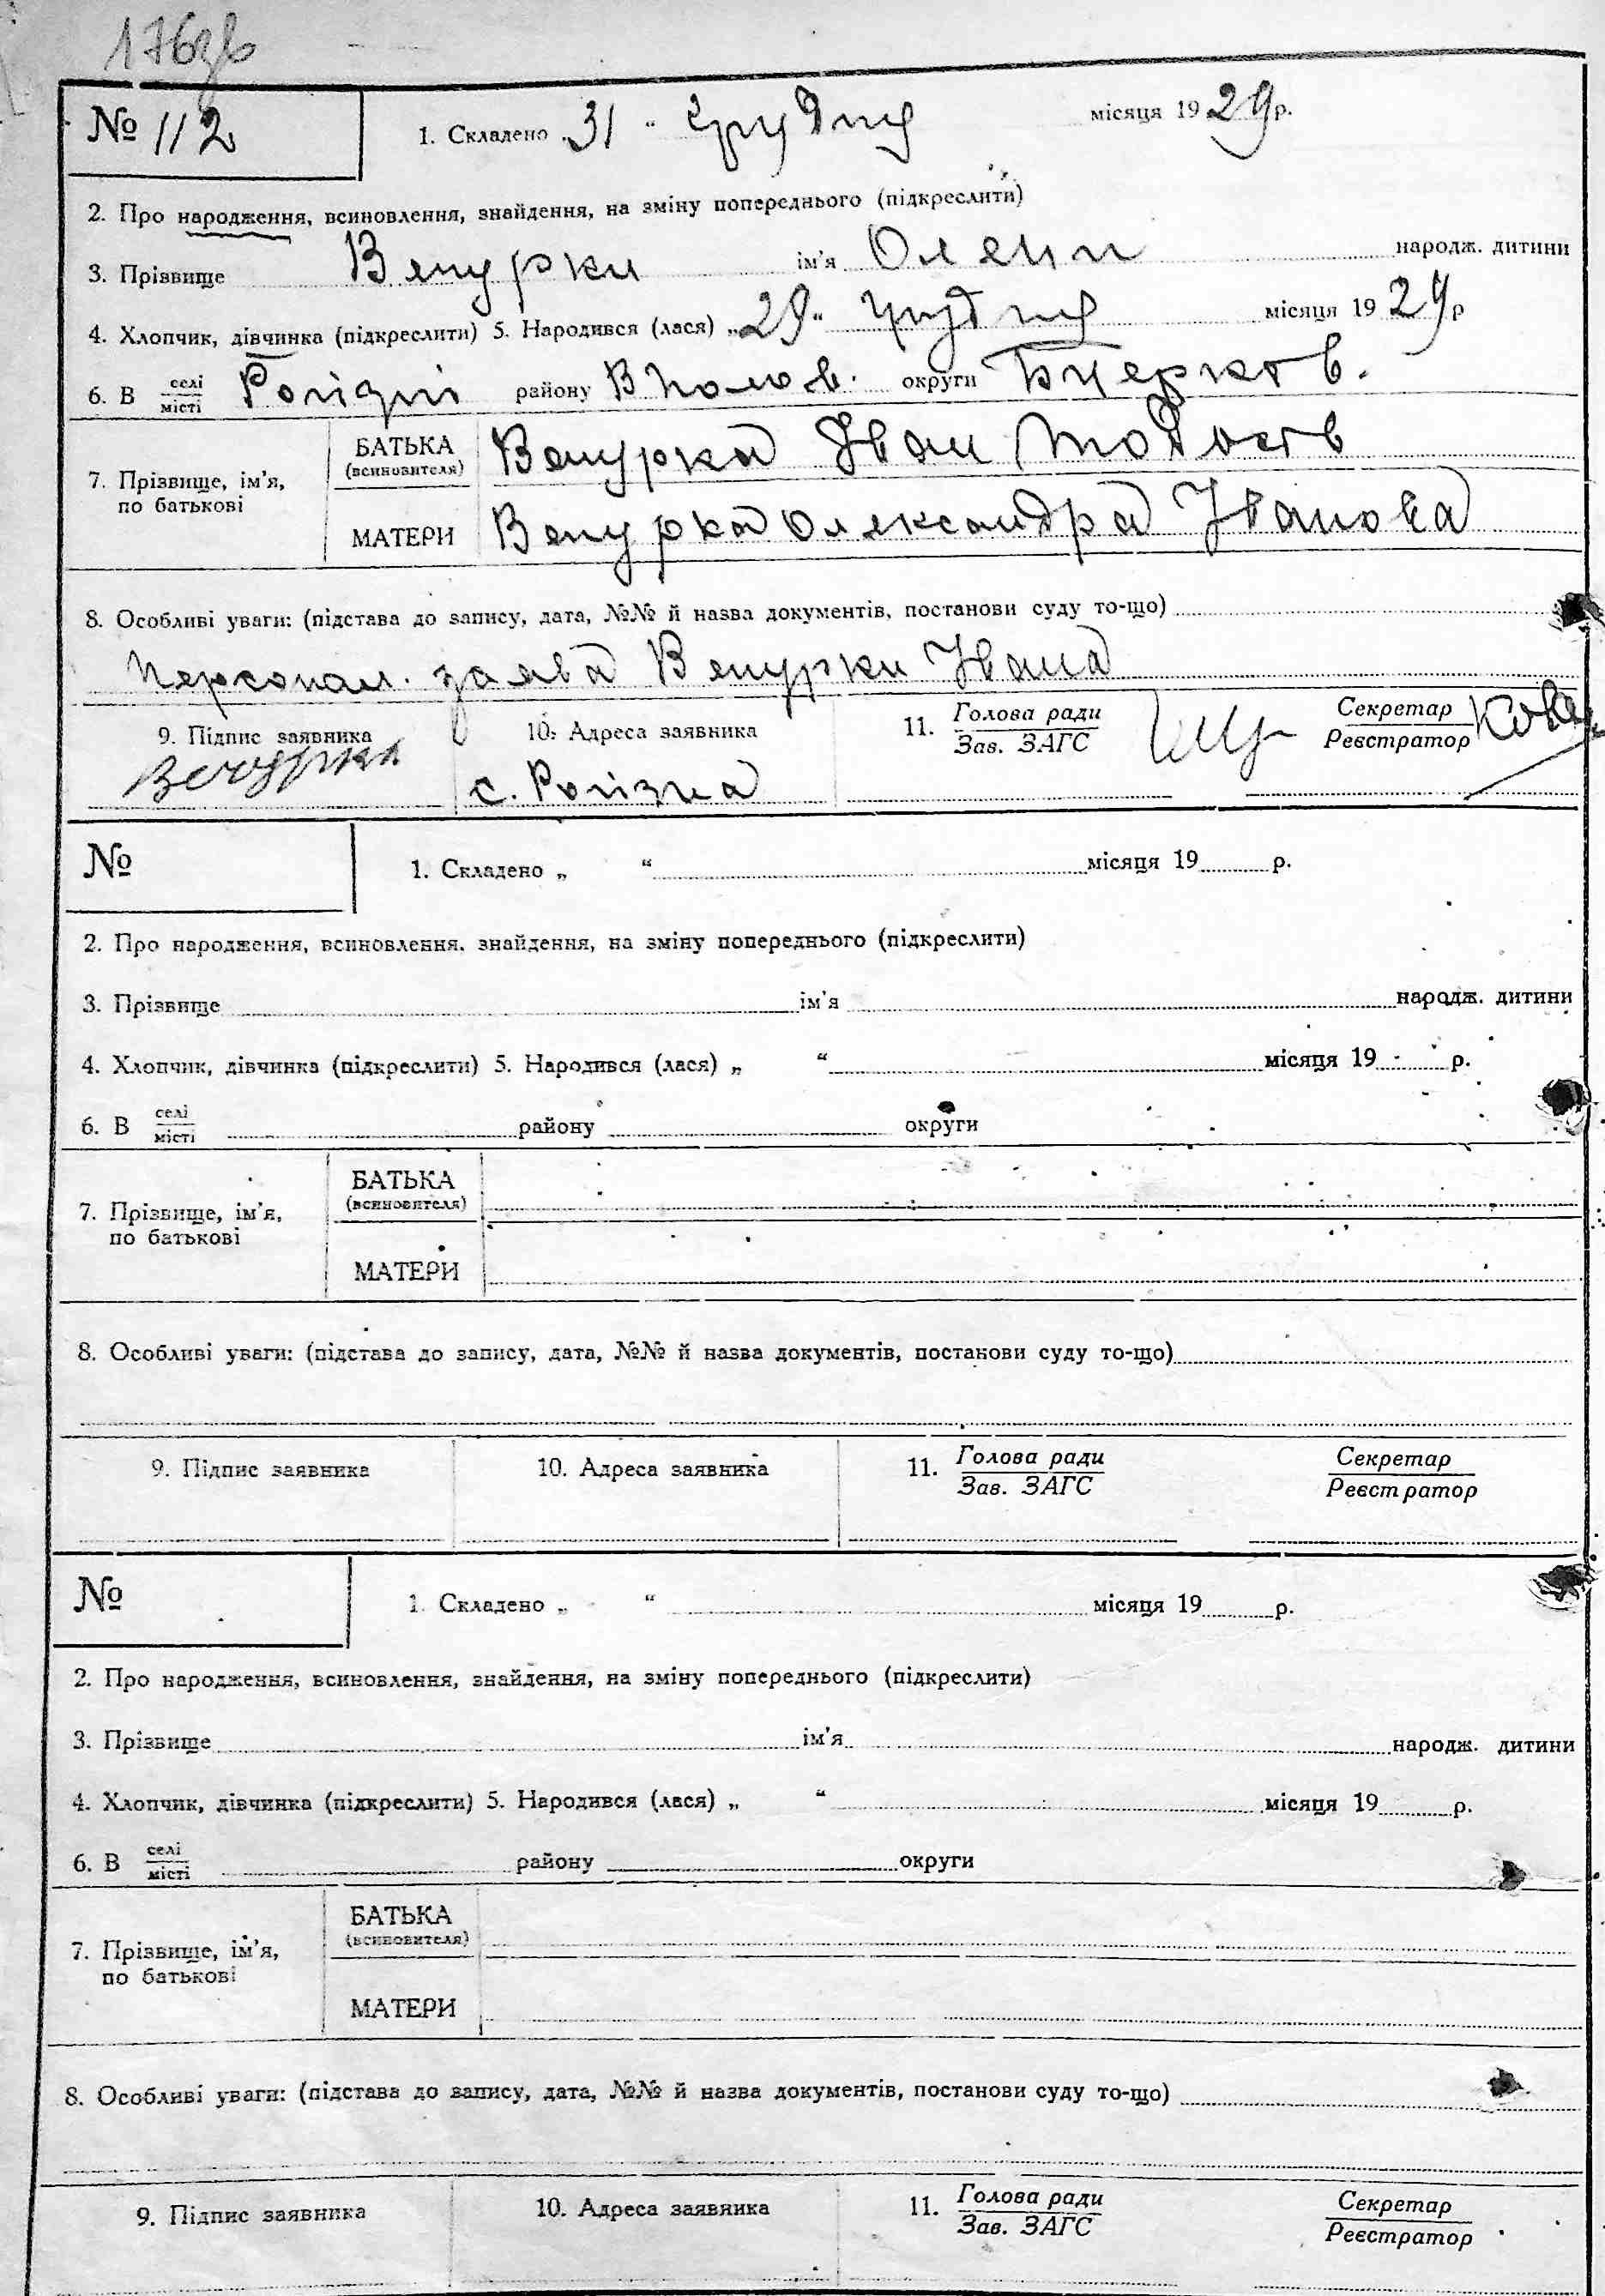 176зв
№ 112
1. Складено „31“ грудня місяця 1929 р.
2. Про народження, всиновлення, знайдення, на зміну попереднього (підкреслити)
3. Прізвище Вепурки ім'я Олени народж. дитини
4. Хлопчик, дівчинка (підкреслити) 5. Народився (лася) „29“ грудня місяця 1929 р
6. В селі/місті Рогізні району В Полов. округи Бцерков.
7. Прізвище, ім'я, по батькові
БАТЬКА (всиновителя) Вепурка Іван Тодосів
МАТЕРИ Вепурка Олександра Іванова
8. Особливі уваги: (підстава до запису, дата, №№ й назва документів, постанови суду то-що)
Персонал. заява Вепурки Івана
9. Підпис заявника 10. Адреса заявника 11. Голова ради/Зав. ЗАГС Секретар/Реєстратор
Вепурка с. Рогізна
№
1. Складено „ “ місяця 19 р.
2. Про народження, всиновлення, знайдення, на зміну попереднього (підкреслити)
3. Прізвище ім'я народж. дитини
4. Хлопчик, дівчинка (підкреслити) 5. Народився (лася) „ “ місяця 19 р.
6. В селі/місті району округи
7. Прізвище, ім'я, по батькові
БАТЬКА (всиновителя)
МАТЕРИ
8. Особливі уваги: (підстава до запису, дата, №№ й назва документів, постанови суду то-що)
9. Підпис заявника 10. Адреса заявника 11. Голова ради/Зав. ЗАГС Секретар/Реєстратор
№
1. Складено „ “ місяця 19 р.
2. Про народження, всиновлення, знайдення, на зміну попереднього (підкреслити)
3. Прізвище ім'я народж. дитини
4. Хлопчик, дівчинка (підкреслити) 5. Народився (лася) „ “ місяця 19 р.
6. В селі/місті району округи
7. Прізвище, ім'я, по батькові
БАТЬКА (всиновителя)
МАТЕРИ
8. Особливі уваги: (підстава до запису, дата, №№ й назва документів, постанови суду то-що)
9. Підпис заявника 10. Адреса заявника 11. Голова ради/Зав. ЗАГС Секретар/Реєстратор